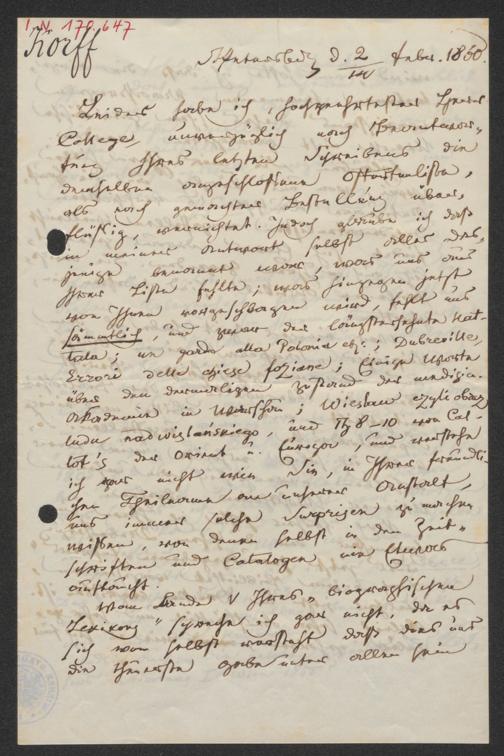 I. N. 170.647
Korff
St Petersburg d. 2/14 Febr. 1860.
Leider habe ich, hochverehrtester Herr
College, unverzüglich nach Beantwor-
tung Ihres letzten Schreibens die
demselben angeschlossene Offertenliste,
als nach gemachter Bestellung über-
flüssig, vernichtet. Jedoch glaube ich daß
in meiner Antwort selbst alles das-
jenige benannt war, was uns aus
Ihrer Liste fehlte; was hingegen jetzt
von Ihnen vorgeschlagen wird, fehlt uns
sämmtlich, und zwar der längstersehnte Nat-
tala; un gardo alla Polonia etc.; Dubreville,
Errori della chiese foziane; Einige Worte
über den dermaligen Zustand der medizin.
Akademie in Warschau; Wieslaw czyli obraz
ludu nadwiślańskiego, und Th 8–10 von Cal-
lot's der Orient u. Europa, und verstehe
ich gar nicht wie Sie, in Ihrer freundli-
chen Theilnahme an unserer Anstalt,
uns immer solche Surprisen zu machen
wissen, von denen selbst in den Zeit-
schriften und Catalogen nie Etwas
auftaucht.
Vom Bande V Ihres „biographischen
Lexikons" spreche ich gar nicht, da es
sich von selbst versteht daß dies uns
die theuerste Gabe unter allen sein